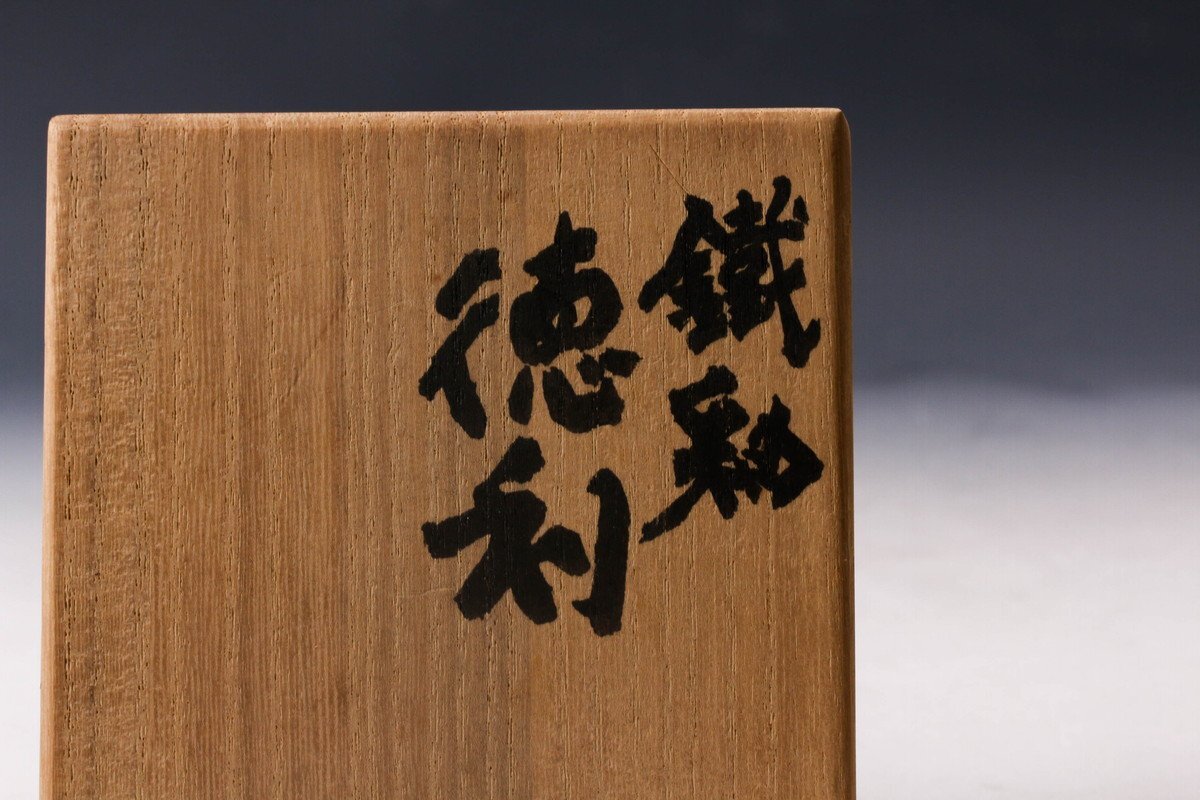 鐵釉
徳利